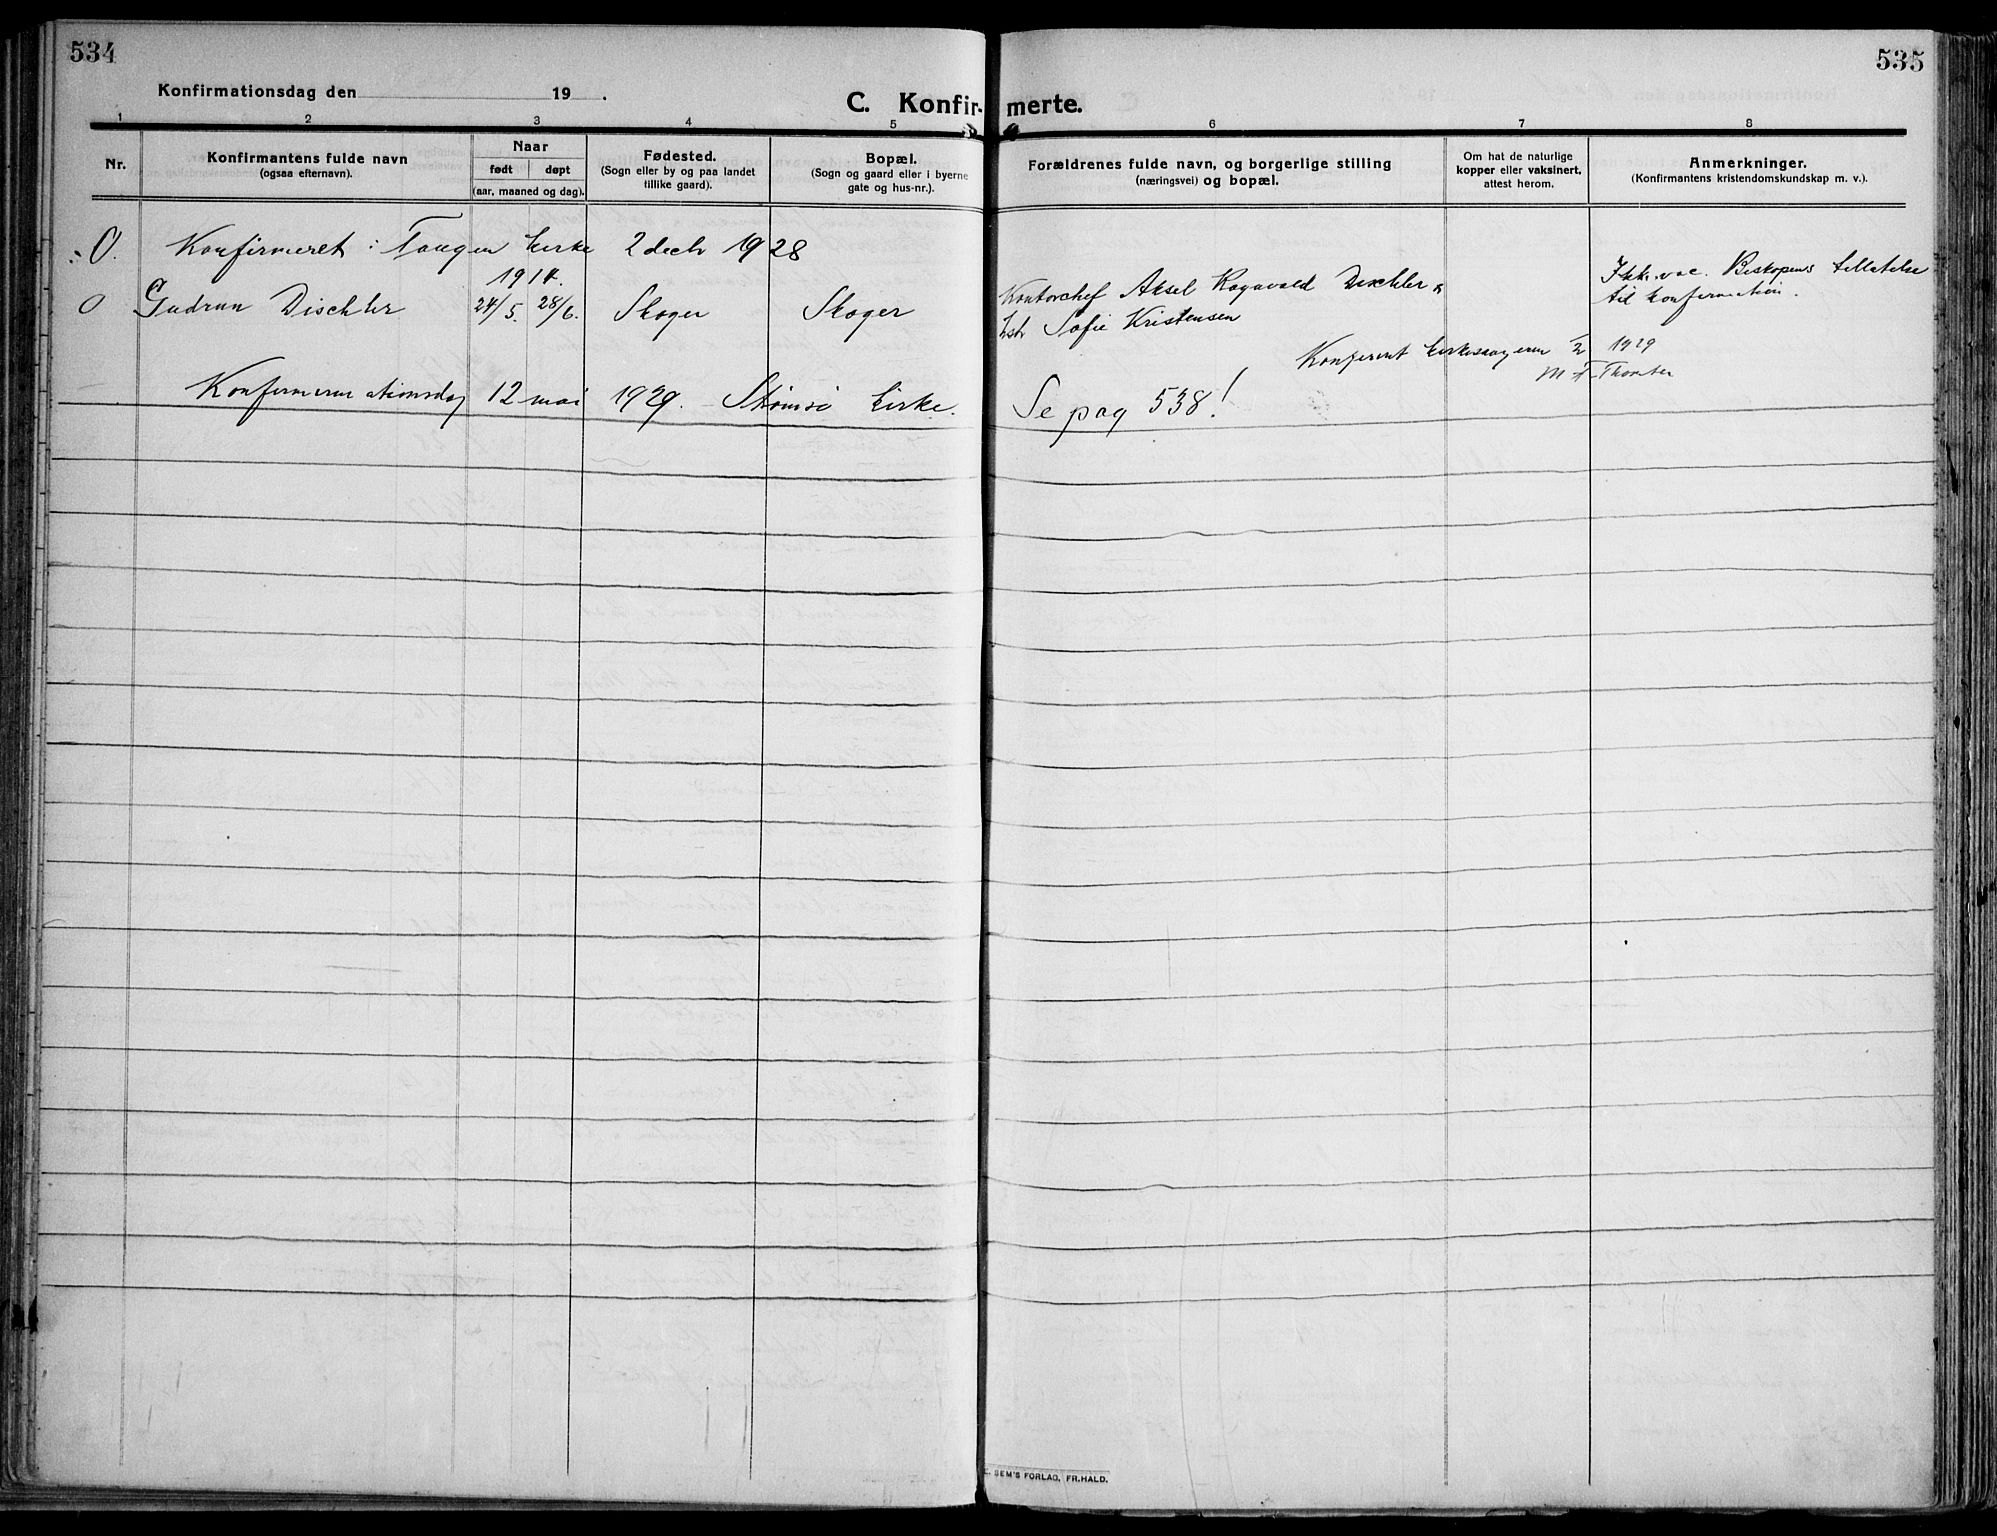 534
535
Konfirmationsdag den 19 .
C. Konfir- merte.
1 2 3 4 5 6 7 8
Nr.
Konfirmantens fulde navn
(ogsaa efternavn).
Naar
født døpt
(aar, maaned og dag).
Fødested.
(Sogn eller by og paa landet
tillike gaard).
Bopæl.
(Sogn og gaard eller i byerne
gate og hus-nr.).
Forældrenes fulde navn, og borgerlige stilling
(næringsvei) og bopæl.
Om hat de naturlige
kopper eller vaksinert,
attest herom.
Anmerkninger.
(Konfirmantens kristendomskundskap m. v.).
O. Konfirmeret i Tangen kirke 2 decbr 1928
1914.
O Gudrun Dischler 24/5. 28/6. Skoger Skoger
Kontorchef Aksel Ragnvald Dischler &
hstr Sofie Kristensen
Ikke vac. Biskopens tillatelse
til konfirmation.
Konfereret kirkesangeren 1929
Konfirmationsdag 12 mai 1929. Strømsø kirke. Se pag 538!
SEM'S FORLAG, FR.HALD.